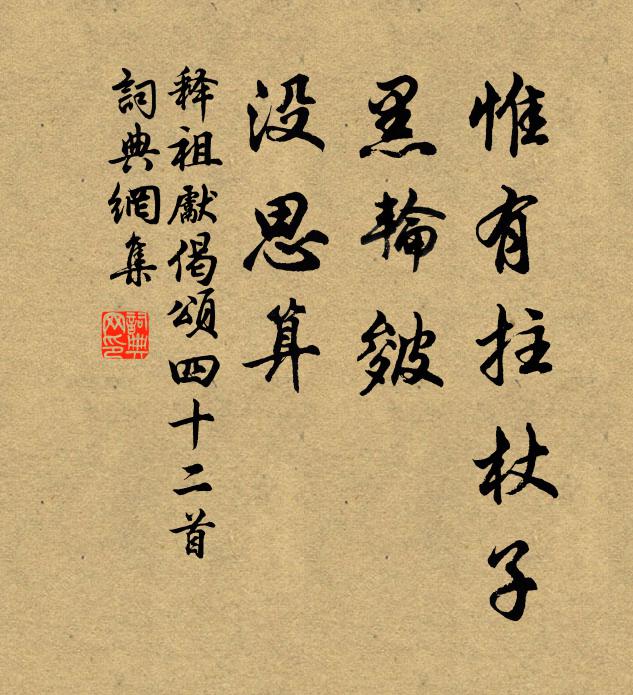 惟有拄杖子
黑輪皴
没思算
释祖獻偈頌四十二首
詞典網集
詞典網印